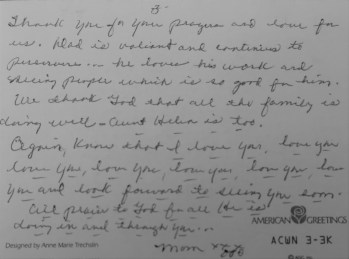 3
Thank you for your prayers and love for
us. Dad is valiant and continues to
persevere... he loves his work and
seeing people which is so good for him.
We thank God that all the family is
doing well - Aunt Helen is too.
Again, know that I love you, love you
love you, love you, love you, love you, love
you and look forward to seeing you soon.
All praise to God for all He is
doing in and through you...
Mom
AMERICAN GREETINGS
ACWN 3-3K
Designed by Anne Marie Trechslin